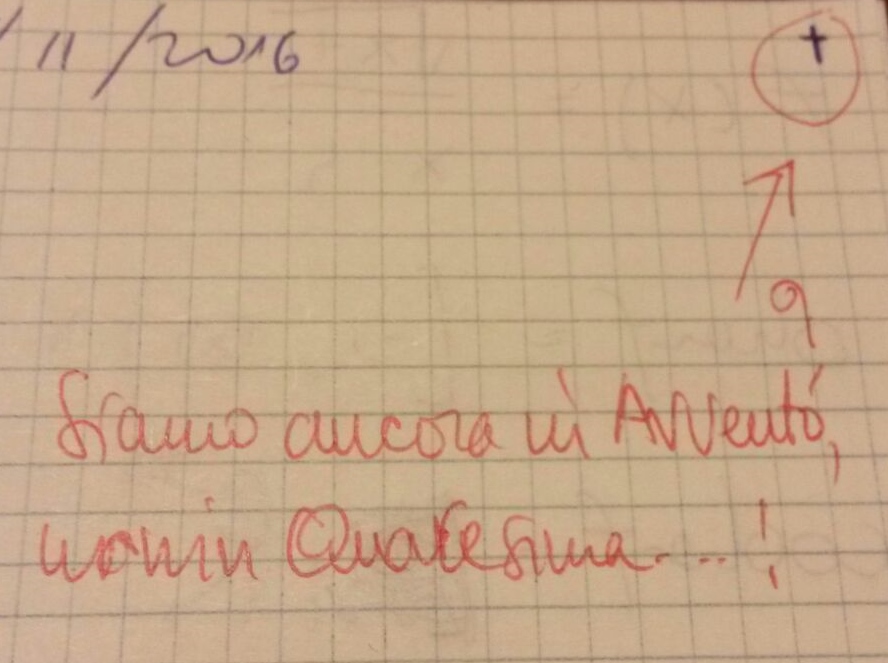 /11/2016 †
Siamo ancora in Avvento,
non in Quaresima....!